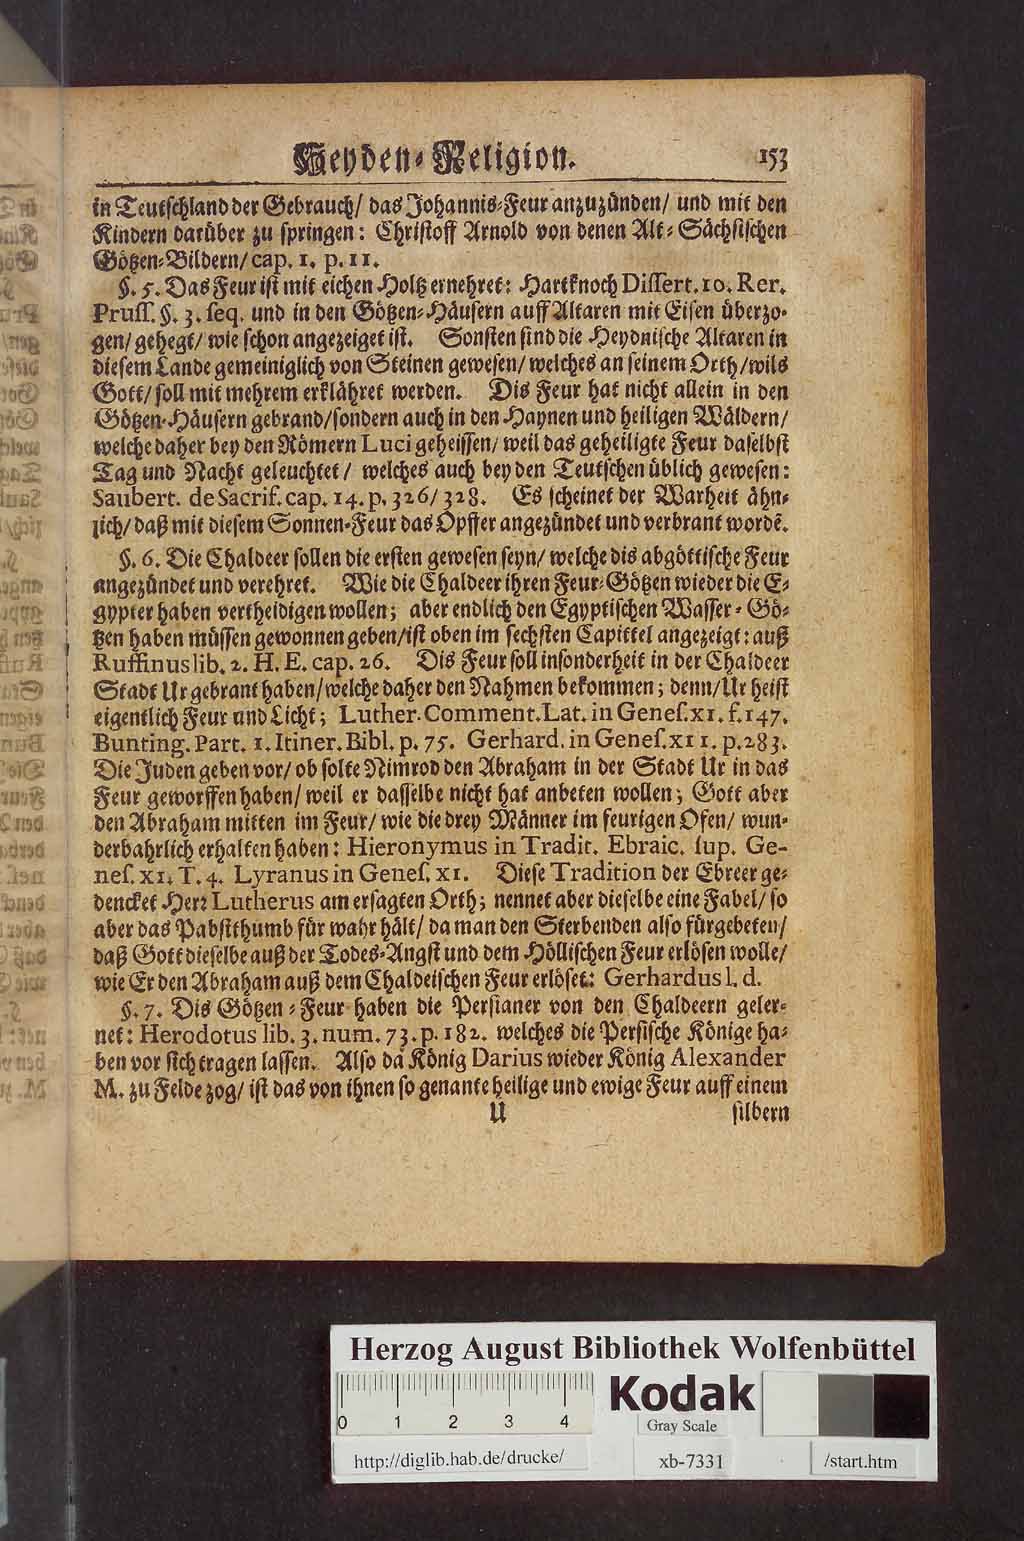 Heyden-Religion. 153
in Teutschland der Gebrauch/ das Johannis-Feur anzuzünden/ und mit den
Kindern darüber zu springen: Christoff Arnold von denen Alt-Sächsischen
Götzen-Bildern/ cap. 1. p. 11.
§. 5. Das Feur ist mit eichen Holtz ernehret: Hartknoch Dissert. 10. Rer.
Pruss. §. 3. seq. und in den Götzen-Häusern auff Altaren mit Eisen überzo-
gen/ gehegt/ wie schon angezeiget ist. Sonsten sind die Heydnische Altaren in
diesem Lande gemeiniglich von Steinen gewesen/ welches an seinem Orth/ wils
Gott/ soll mit mehrem erklähret werden. Dis Feur hat nicht allein in den
Götzen-Häusern gebrand/ sondern auch in den Haynen und heiligen Wäldern/
welche daher bey den Römern Luci geheissen/ weil das geheiligte Feur daselbst
Tag und Nacht geleuchtet/ welches auch bey den Teutschen üblich gewesen:
Saubert. de Sacrif. cap. 14. p. 326/ 328. Es scheinet der Warheit ähn-
lich/ daß mit diesem Sonnen-Feur das Opffer angezündet und verbrant wordē.
§. 6. Die Chaldeer sollen die ersten gewesen seyn/ welche dis abgöttische Feur
angezündet und verehret. Wie die Chaldeer ihren Feur-Götzen wieder die E-
gypter haben vertheidigen wollen; aber endlich den Egyptischen Wasser-Gö-
tzen haben müssen gewonnen geben/ ist oben im sechsten Capittel angezeigt: auß
Ruffinus lib. 2. H. E. cap. 26. Dis Feur soll insonderheit in der Chaldeer
Stadt Ur gebrant haben/ welche daher den Nahmen bekommen; denn/ Ur heist
eigentlich Feur und Licht; Luther. Comment. Lat. in Genes. XI. f. 147.
Bunting. Part. 1. Itiner. Bibl. p. 75. Gerhard. in Genes. XII. p. 283.
Die Juden geben vor/ ob solte Nimrod den Abraham in der Stadt Ur in das
Feur geworffen haben/ weil er dasselbe nicht hat anbeten wollen; Gott aber
den Abraham mitten im Feur/ wie die drey Männer im feurigen Ofen/ wun-
derbahrlich erhalten haben: Hieronymus in Tradit. Ebraic. sup. Ge-
nes. XI. T. 4. Lyranus in Genes. XI. Diese Tradition der Ebreer ge-
dencket Herr Lutherus am ersagten Orth; nennet aber dieselbe eine Fabel/ so
aber das Pabstthumb für wahr hält/ da man den Sterbenden also fürgebeten/
daß Gott dieselbe auß der Todes-Angst und dem Höllischen Feur erlösen wolle/
wie Er den Abraham auß dem Chaldeischen Feur erlöset: Gerhardus l. d.
§. 7. Dis Götzen-Feur haben die Persianer von den Chaldeern geler-
net: Herodotus lib. 3. num. 73. p. 182. welches die Persische Könige ha-
ben vor sich tragen lassen. Also da König Darius wieder König Alexander
M. zu Felde zog/ ist das von ihnen so genante heilige und ewige Feur auff einem
U silbern
Herzog August Bibliothek Wolfenbüttel
0 1 2 3 4
Kodak
Gray Scale
http://diglib.hab.de/drucke/ xb-7331 /start.htm